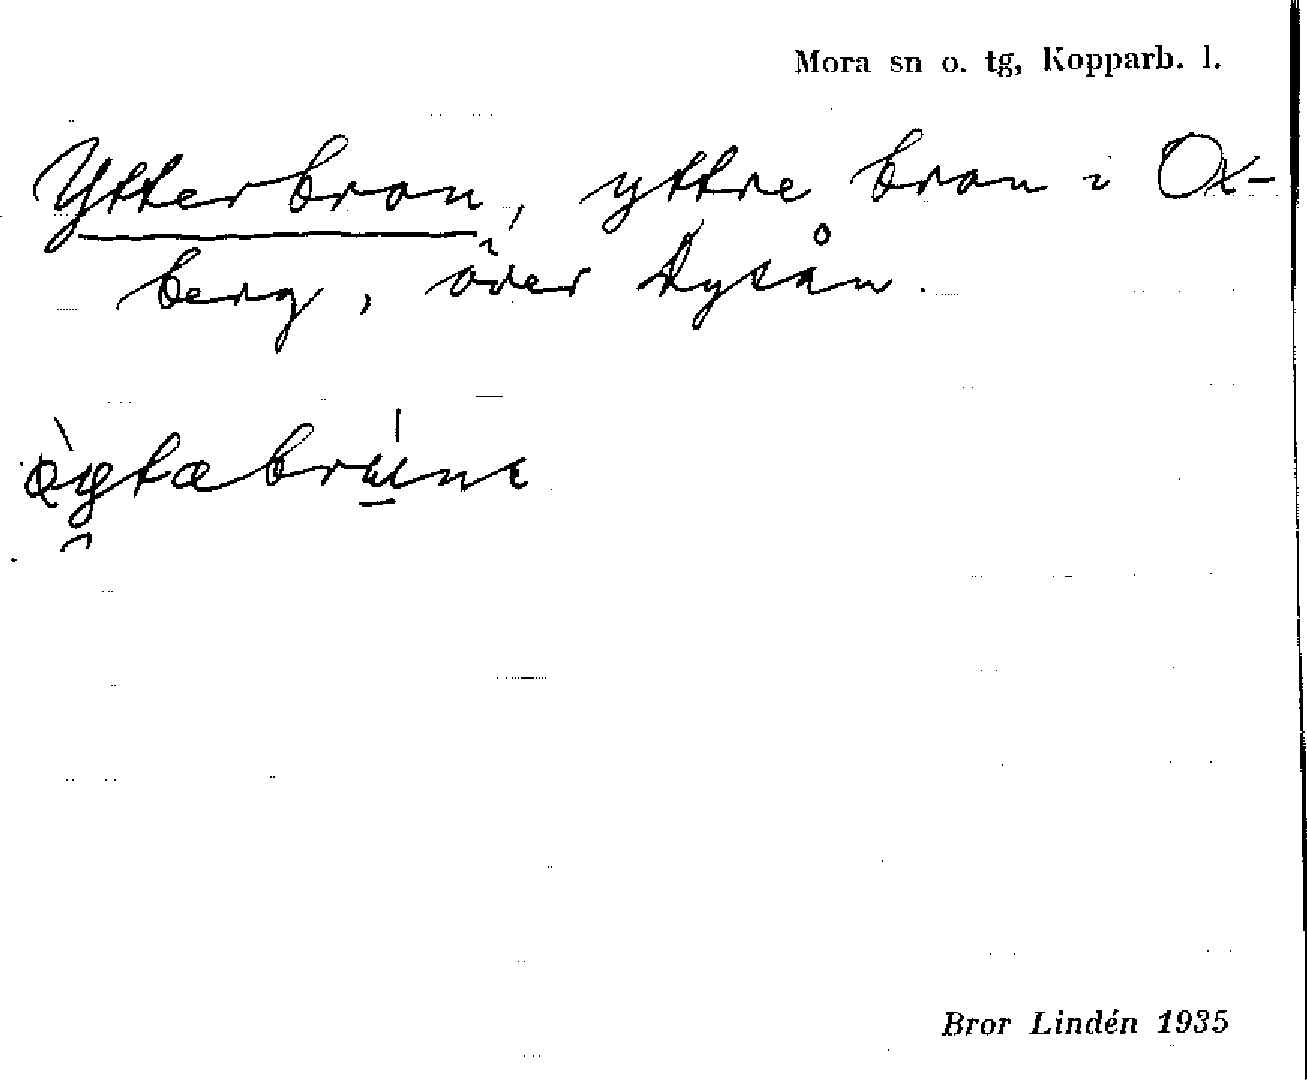 Mora sn o. tg, Kopparb. l.
Ytterbron, yttre bron i Ox-
berg, över
Bror Lindén 1935